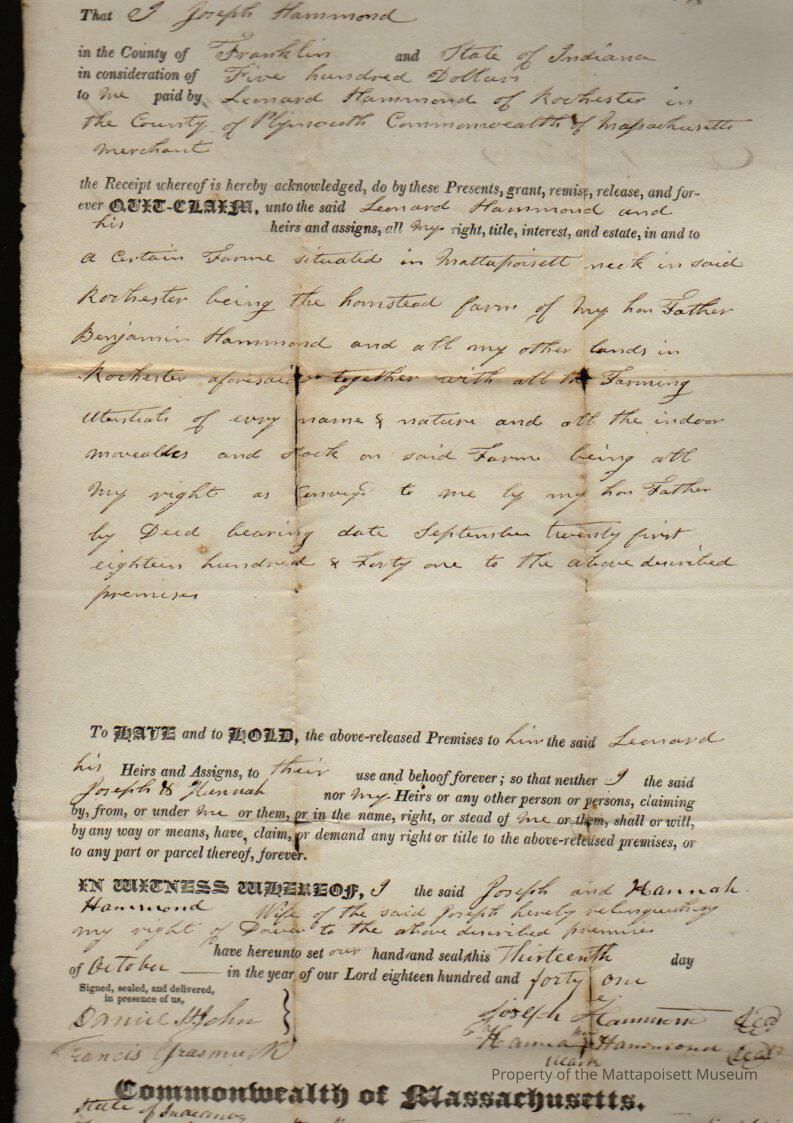 That I Joseph Hammond
in the County of Franklin and State of Indiana
in consideration of Five hundred Dollars
to me paid by Leonard Hammond of Rochester in
the County of Plymouth Commonwealth of Massachusetts
merchant
the Receipt whereof is hereby acknowledged, do by these Presents, grant, remise, release, and for-
ever QUIT-CLAIM, unto the said Leonard Hammond and
his heirs and assigns, all my right, title, interest, and estate, in and to
a certain Farme situated in Mattapoisett neck in said
Rochester being the homstead farm of my hon Father
Benjamin Hammond and all my other lands in
Rochester aforesaid together with all the Farming
Utensials of evry name & nature and all the indoor
moveables and stock on said Farme being all
my right as convey'd to me by my hon Father
by Deed bearing date September twenty first
eighteen hundred & Forty one to the above described
premises
To HAVE and to HOLD, the above-released Premises to him the said Leonard
his Heirs and Assigns, to their use and behoof forever; so that neither I the said
Joseph & Hannah nor my Heirs or any other person or persons, claiming
by, from, or under me or them, or in the name, right, or stead of me or them, shall or will,
by any way or means, have, claim, or demand any right or title to the above-released premises, or
to any part or parcel thereof, forever.
IN WITNESS WHEREOF, I the said Joseph and Hannah
Hammond Wife of the said Joseph hereby relinquishing
my right of Dower to the above described premises
have hereunto set our hand and seal this Thirteenth day
of October in the year of our Lord eighteen hundred and forty one
Signed, sealed, and delivered,
in presence of us,
Daniel St John
Francis Grasmuck
Joseph Hammond
her
Hannah Hammond
mark
Property of the Mattapoisett Museum
Commonwealth of Massachusetts.
State of Indiana